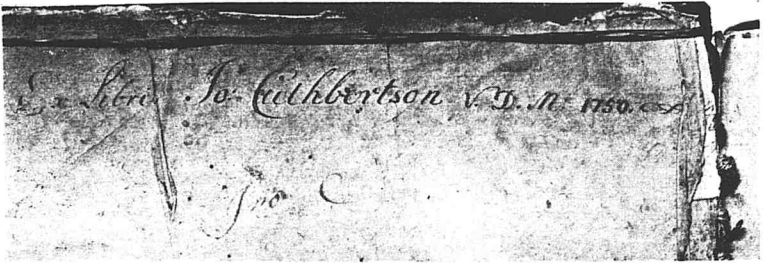 Ex Libris Jo Cuthbertson V. D. M: 1750.
Jno C